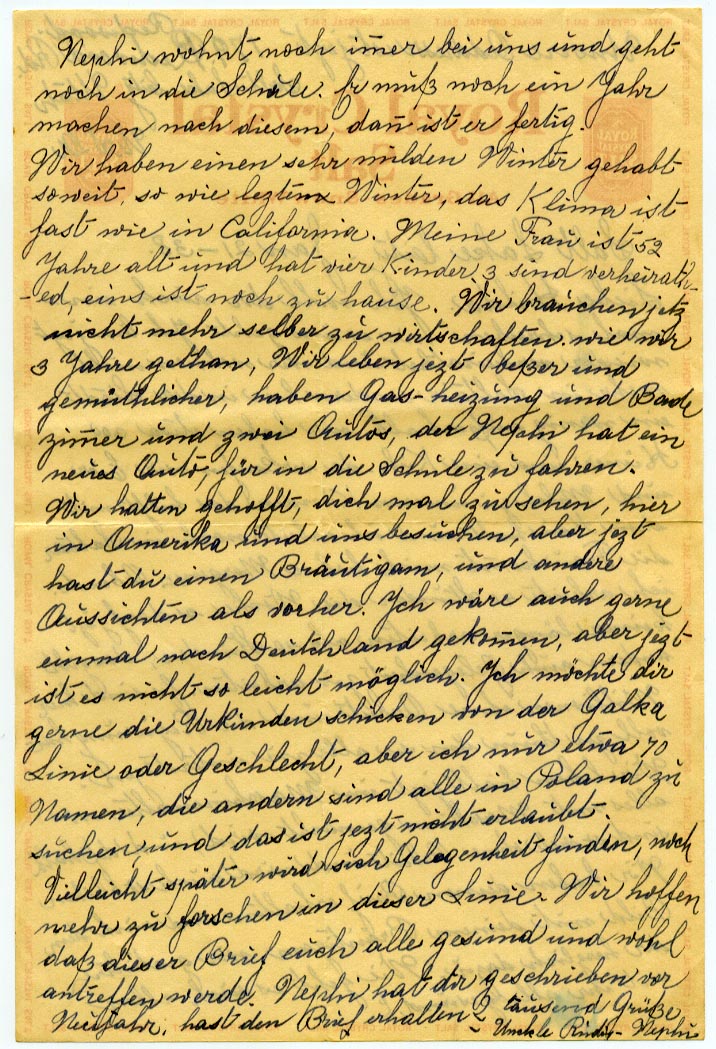 Nephi wohnt noch im̅er bei uns und geht
noch in die Schule. Er muß noch ein Jahr
machen nach diesem, dan̅ ist er fertig.
Wir haben einen sehr milden Winter gehabt
soweit, so wie lezten Winter, das Klima ist
fast wie in California. Meine Frau ist 52
Jahre alt und hat vier Kinder, 3 sind verheirath-
-ed, eins ist noch zu hause. Wir brauchen jetz
nicht mehr selber zu wirtschaften. wie wir
3 Jahre gethan, Wir leben jezt beßer und
gemüthlicher, haben Gas-heizung und Bade
zim̅er und zwei Autos, der Nephi hat ein
neues Auto, für in die Schule zu fahren.
Wir hatten gehofft, dich mal zu sehen, hier
in Amerika und uns besuchen, aber jezt
hast du einen Bräutigam, und andere
Aussichten als vorher. Ich wäre auch gerne
einmal nach Deutchland gekom̅en, aber jezt
ist es nicht so leicht möglich. Ich möchte dir
gerne die Urkunden schicken von der Galka
Linie oder Geschlecht, aber ich nur etwa 70
Namen, die andern sind alle in Poland zu
suchen, und das ist jezt nicht erlaubt.
Vielleicht später wird sich Gelegenheit finden, noch
mehr zu forschen in dieser Linie. Wir hoffen
daß dieser Brief euch alle gesund und wohl
antreffen werde. Nephi hat dir geschrieben vor
Neujahr, hast den Brief erhalten? tausend Grüße
Unckle - Nephi
Royal Crystal
Salt